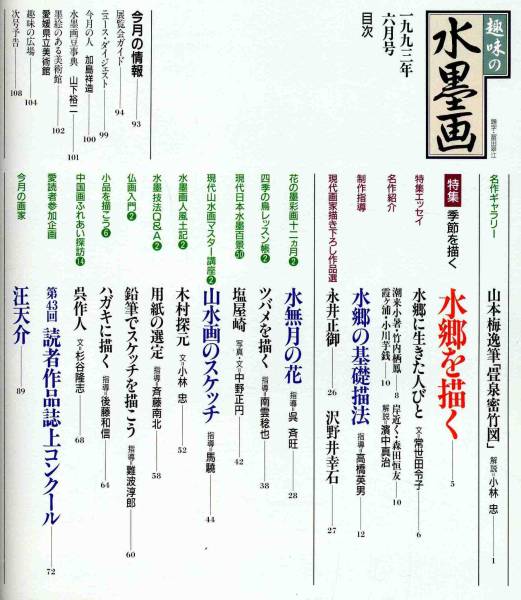 趣味の
水墨画
一九九三年
六月号
目次
名作ギャラリー
山本梅逸筆「畳泉密竹図」 解説=小林 忠 1
特集 季節を描く
水郷を描く 5
特集エッセイ
水郷に生きた人びと 文=常世田令子 6
名作紹介
潮来小暑・竹内栖鳳 8 岸近く・森田恒友 10
霞ヶ浦・小川芋銭 10 解説=濱中真治
制作指導
水郷の基礎描法 指導=高橋英男 12
現代画家描き下ろし作品選
永井正御 26 沢野井幸石 27
花の墨彩画十二ヵ月❷
水無月の花 指導=呉 斉旺 28
四季の鳥レッスン帳❷
ツバメを描く 指導=南雲稔也 38
現代日本水墨百景㊿
塩屋崎 写真・文=中野正円 42
現代山水画マスター講座❷
山水画のスケッチ 指導=馬驍 44
水墨画人風土記❷
木村探元 文=小林 忠 52
水墨技法Q&A❷
用紙の選定 指導=斉藤南北 58
仏画入門❷
鉛筆でスケッチを描こう 指導=難波淳郎 60
小品を描こう❻
ハガキに描く 指導=後藤和信 64
中国画ふれあい探訪⓮
呉作人 文=杉谷隆志 68
愛読者参加企画
第43回 読者作品誌上コンクール 72
今月の画家
汪天介 89
今月の情報 93
展覧会ガイド 94
ニュース・ダイジェスト 99
今月の人 加島祥造 100
水墨画豆事典 山下裕二 101
墨絵のある美術館 102
愛媛県立美術館
趣味の広場 104
次号予告 108